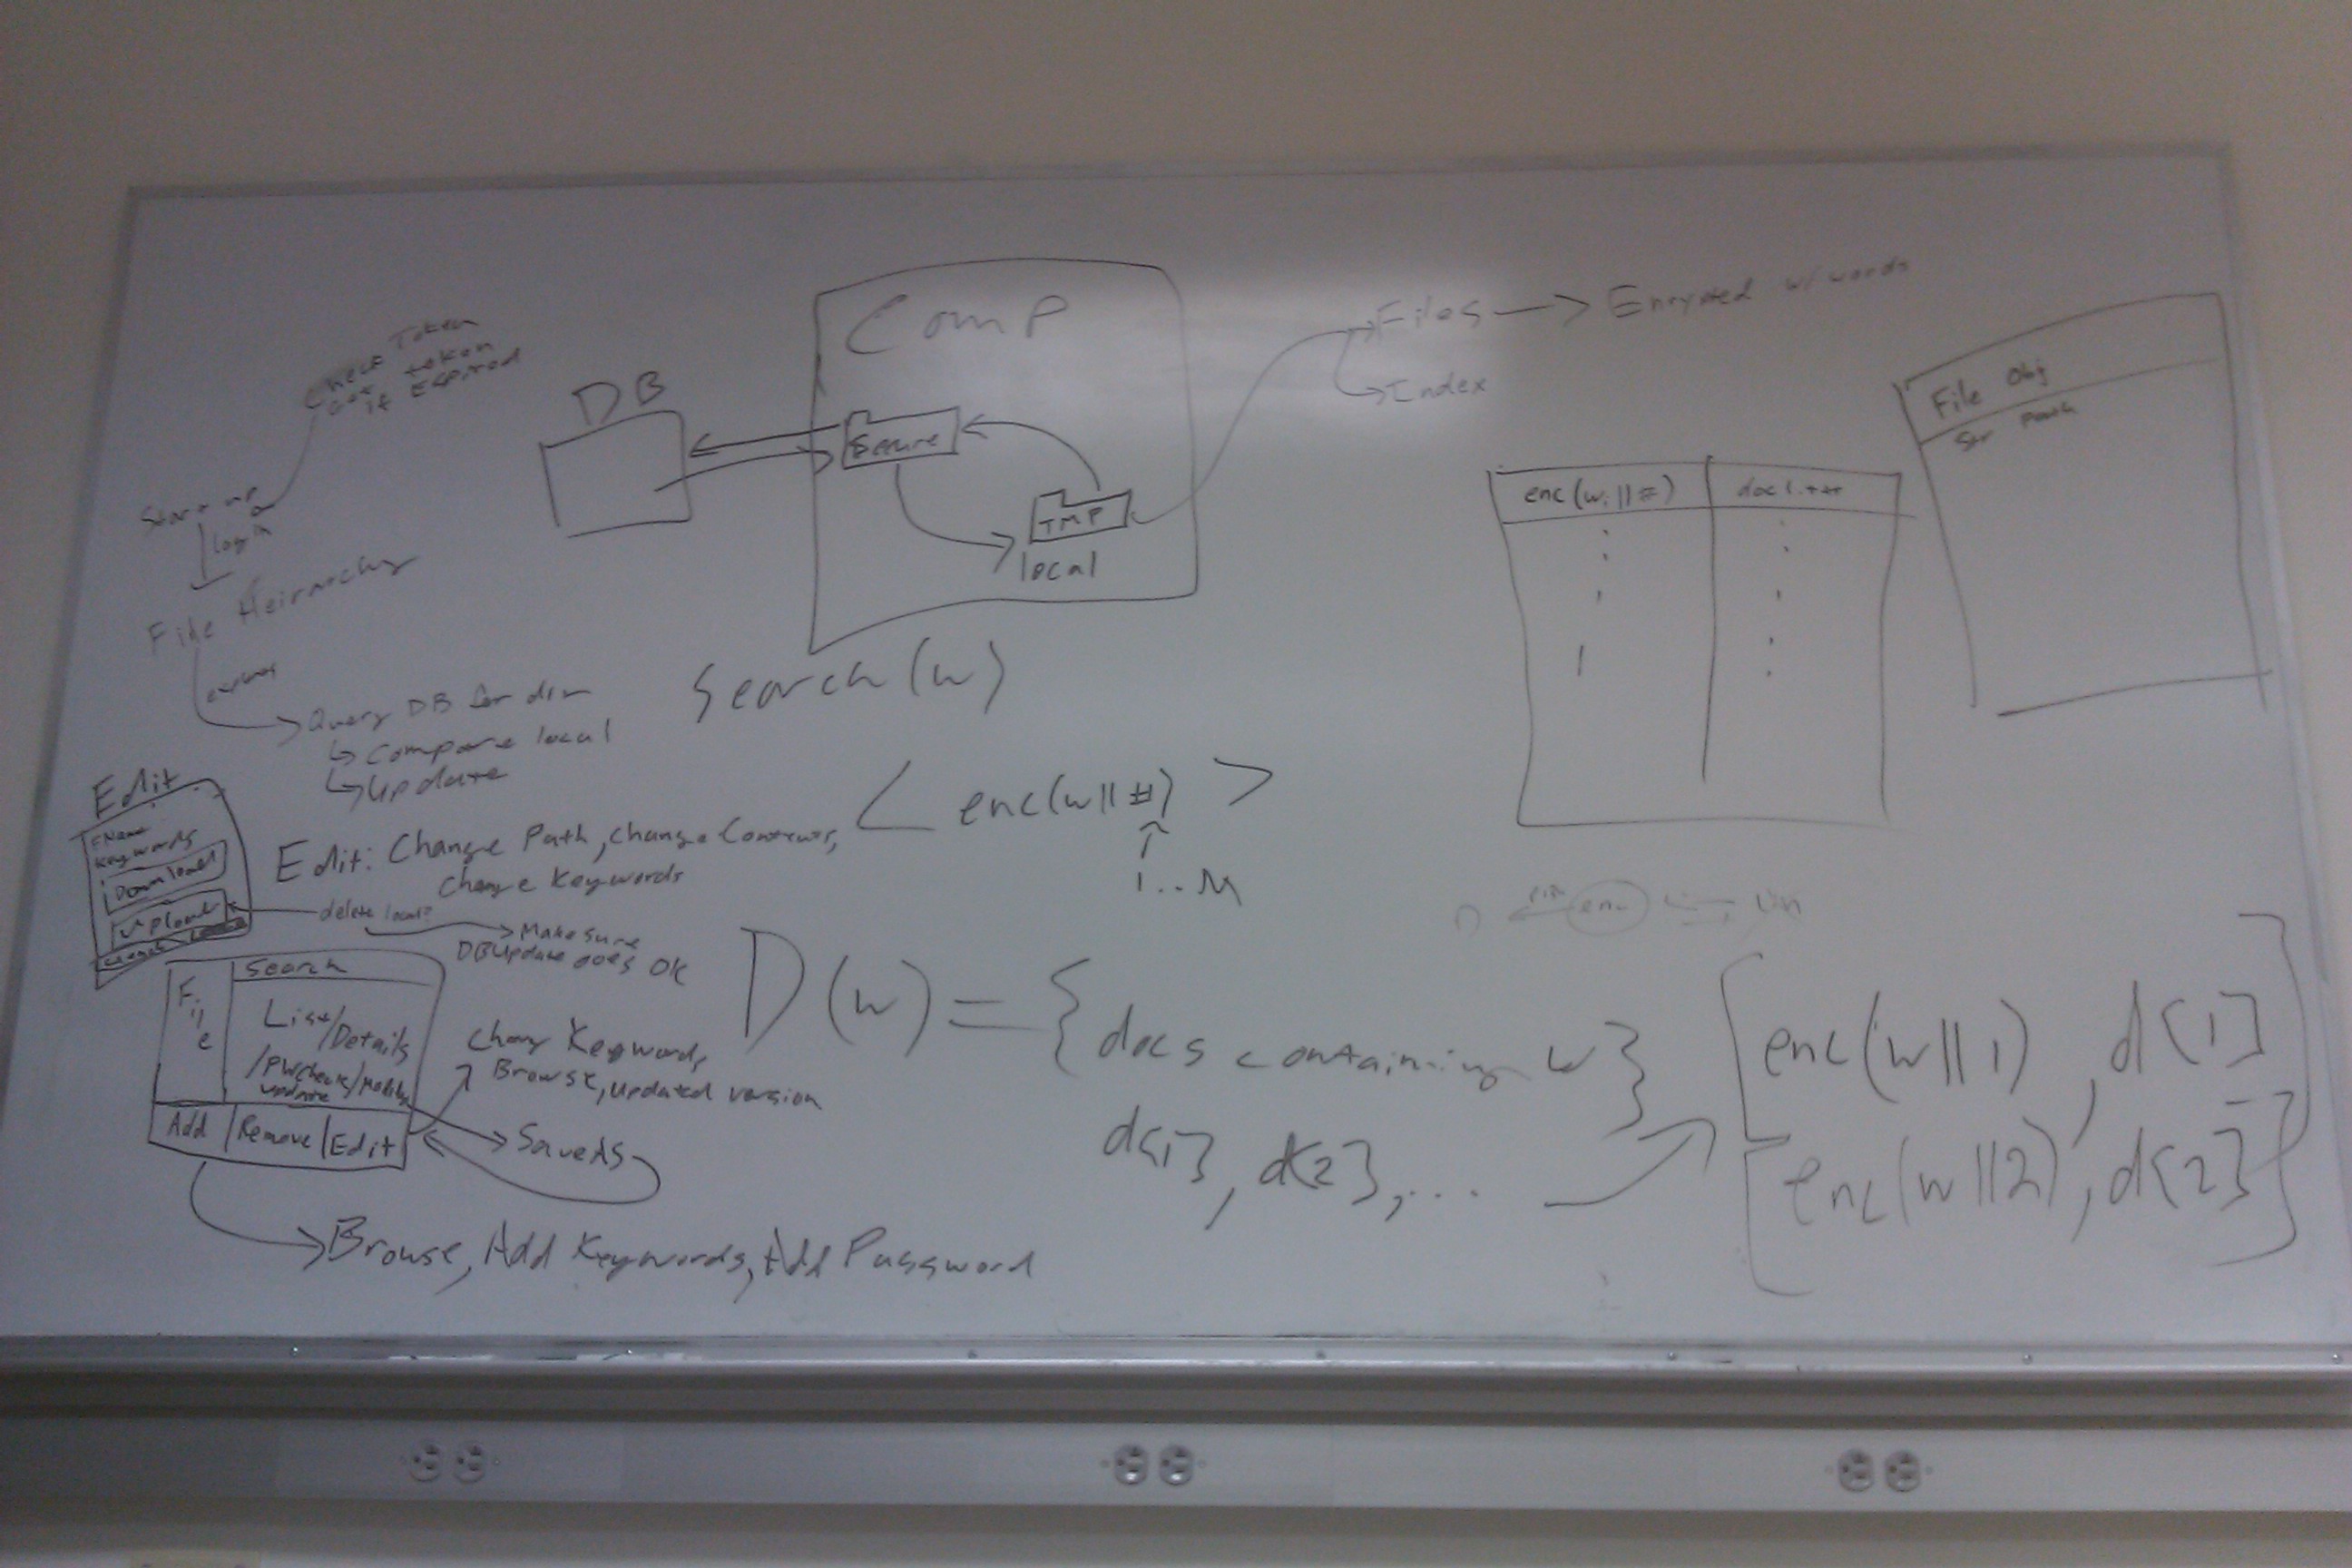 Check Token
Get token
if Expired
Start up
login
File Heirarchy
expand
Query DB for dir
Compare local
Update
DB
Comp
Secure
TMP
local
Files → Encrypted w/ words
Index
File Obj
Str Path
enc(wi||#)
Search(w)
< enc(w||#) >
1..M
Edit
Keywords
Download
Upload
Edit: Change Path, Change Contents,
Change Keywords
delete local?
Make sure
DBUpdate goes OK
Search
File
List/Details
/PWCheck/Modify
update
Add | Remove | Edit
Change Keywords,
Browse, updated version
SaveAs
Browse, Add Keywords, Add Password
enc
D(w) = {docs containing w}
d[1], d[2], ...
[enc(w||1), d[1]]
[enc(w||2), d[2]]